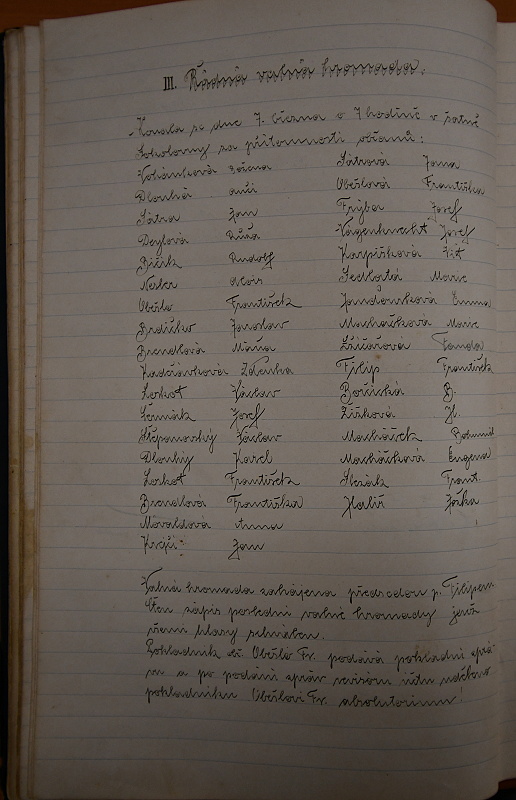 III. Řádná valná hromada.
Konala se dne 7. března o 7 hodině v šatně
Sokolovny za přítomnosti občanů:
Vohánková Božena Šátrová Jana
Dlouhá Uhešlová Františka
Šátra Jan Frýba Josef
Deylová Růža Vágenknecht Josef
Bičík Rudolf Karpíšková Vít
Neker Alois Sedlatá Marie
Obešlo František Jandourková Emma
Brdičko Jaroslav Machačková Marie
Brendlová Máňa Fanda
Zdenka Filip František
Lorkot Václav B.
Josef Žižková Jl.
Štěpanovský Václav Macháček Bohumil
Dlouhý Karel Macháčková Eugena
Lorkot František Frant.
Brendlová Františka Haliř Jožka
Movaldova Anna
Krejčí Jan
Valná hromada zahájena předsedou p. Filipem.
Čten zápis poslední valné hromady jenž
všemi hlasy schválen.
Pokladník Obešlo Fr. podává pokladní zprá
vu a po podání zpráv revisorů účtu uděleno
pokladníku Obešlovi Fr. absolutorium.